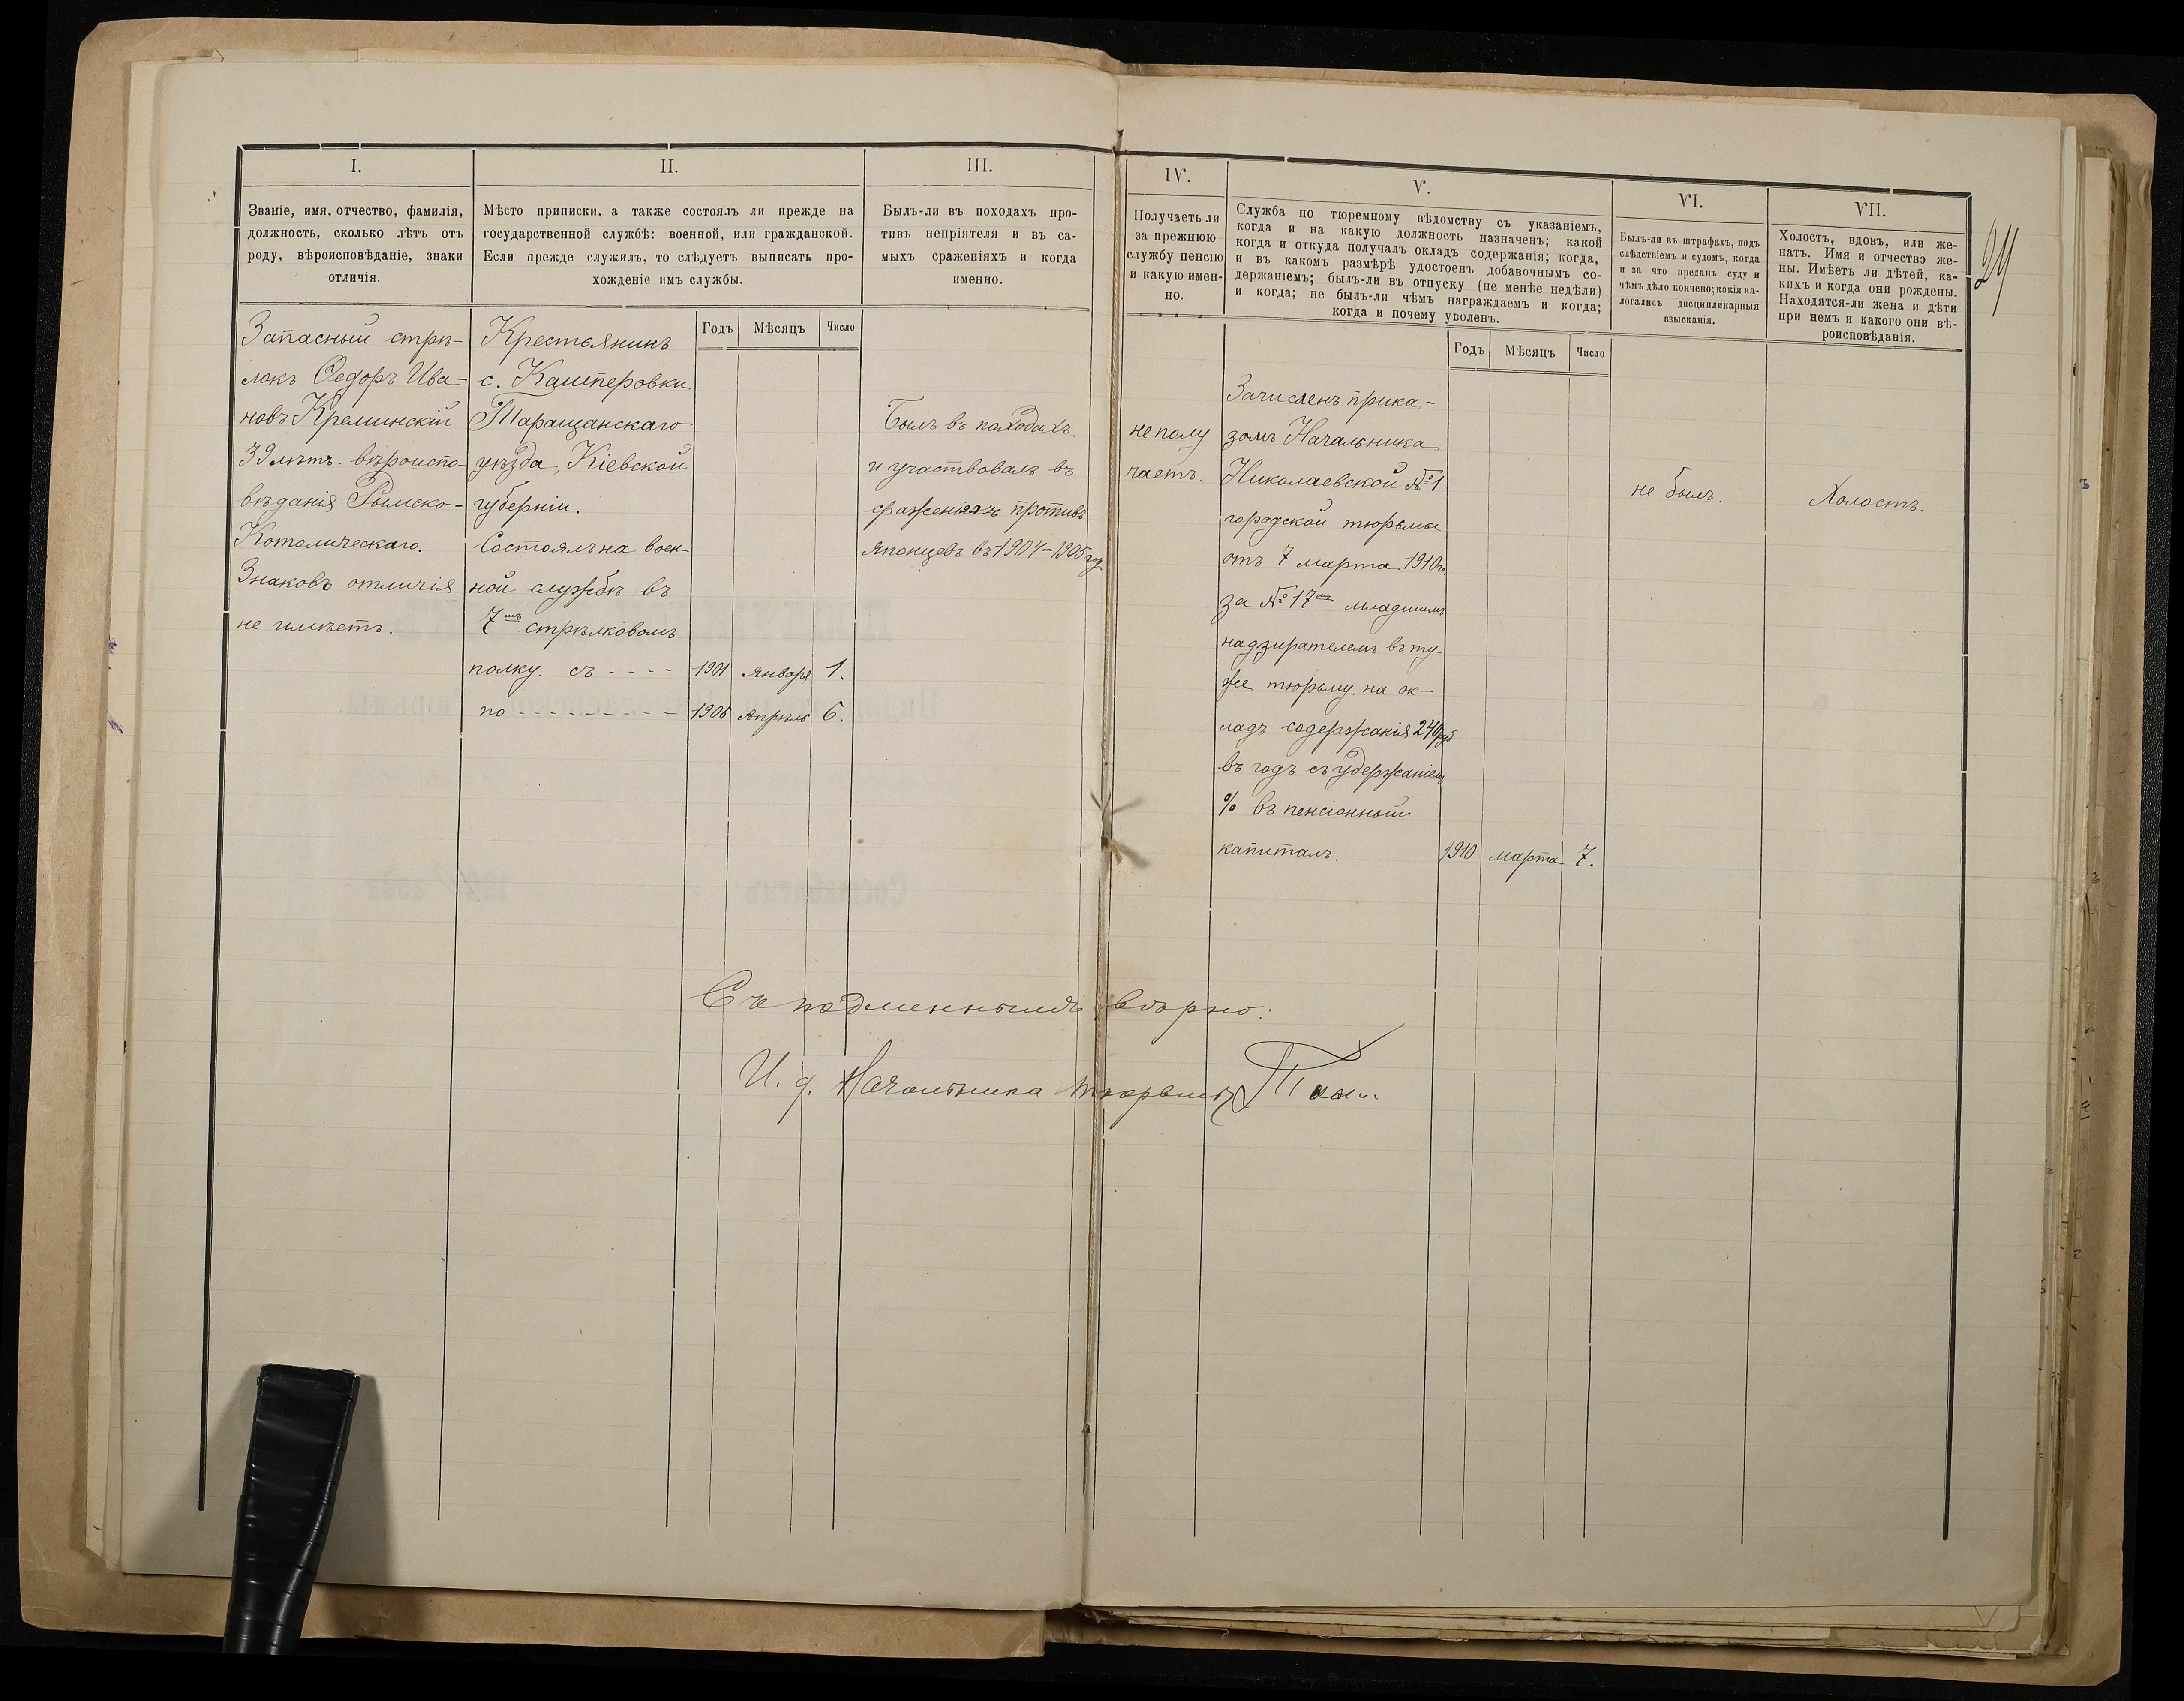 24
I.
Званіе, имя, отчество, фамилія,
должность, сколько лѣтъ отъ
роду, вѣроисповѣданіе, знаки
отличія.
II.
Мѣсто приписки, а также состоялъ ли прежде на
государственной службѣ: военной, или гражданской.
Если прежде служилъ, то слѣдуетъ выписать про-
хожденіе имъ службы.
III.
Былъ-ли въ походахъ про-
тивъ непріятеля и въ са-
мыхъ сраженіяхъ и когда
именно.
IV.
Получаетъ ли
за прежнюю
службу пенсію
и какую имен-
но.
V.
Служба по тюремному вѣдомству съ указаніемъ,
когда и на какую должность назначенъ; какой
когда и откуда получалъ окладъ содержанія; когда,
и въ какомъ размѣрѣ удостоенъ добавочнымъ со-
держаніемъ; былъ-ли въ отпуску (не менѣе недѣли)
и когда; не былъ-ли чѣмъ награждаемъ и когда;
когда и почему уволенъ.
VI.
Былъ-ли въ штрафахъ, подъ
слѣдствіемъ и судомъ, когда
и за что преданъ суду и
чѣмъ дѣло кончено; какія на-
логались дисциплинарныя
взысканія.
VII.
Холостъ, вдовъ, или же-
натъ. Имя и отчество же-
ны. Имѣетъ ли дѣтей, ка-
кихъ и когда они рождены.
Находятся-ли жена и дѣти
при немъ и какого они вѣ-
роисповѣданія.
Годъ Мѣсяцъ Число
Годъ Мѣсяцъ Число
Запасный стрѣ-
локъ Ѳедоръ Ива-
новъ Креминскій
39 лѣтъ. вѣроиспо-
вѣданія Римско-
Католическаго.
Знаковъ отличія
не имѣетъ.
Крестьянинъ
с. Кашперовки
Таращанскаго
уѣзда, Кіевской
губерніи.
Состоялъ на воен-
ной службѣ въ
7мъ стрѣлковомъ
полку. съ - - - - 1901 Января 1.
по - - - - - - - - - 1906 Апрѣль 6.
Былъ въ походахъ
и участвовалъ въ
сраженіяхъ противъ
Японцевъ въ 1904-1905 гг.
не полу
чаетъ.
Зачисленъ прика-
зомъ Начальника
Николаевской № 1
городской тюрьмы
отъ 7 марта 1910 г.
за № 17 младшимъ
надзирателемъ въ ту-
же тюрьму на ок-
ладъ содержанія 240 руб
въ годъ съ удержаніемъ
% въ пенсіонный
капиталъ. 1910 марта 7.
не былъ.
Холостъ.
Съ подлиннымъ вѣрно:
И. д. Начальника тюрьмы